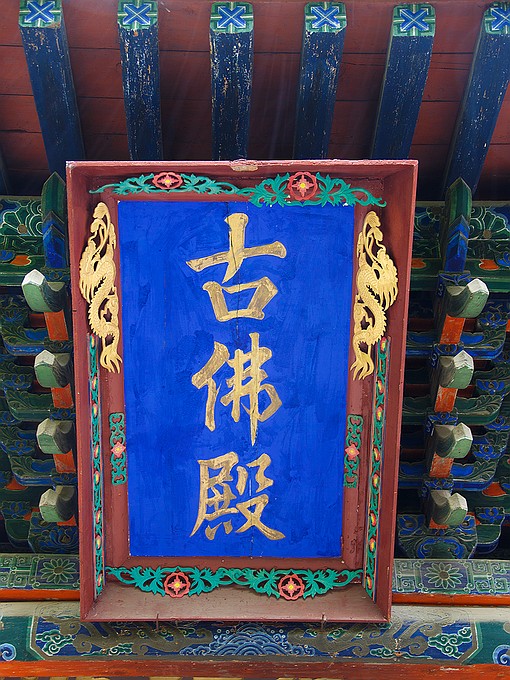 古佛殿